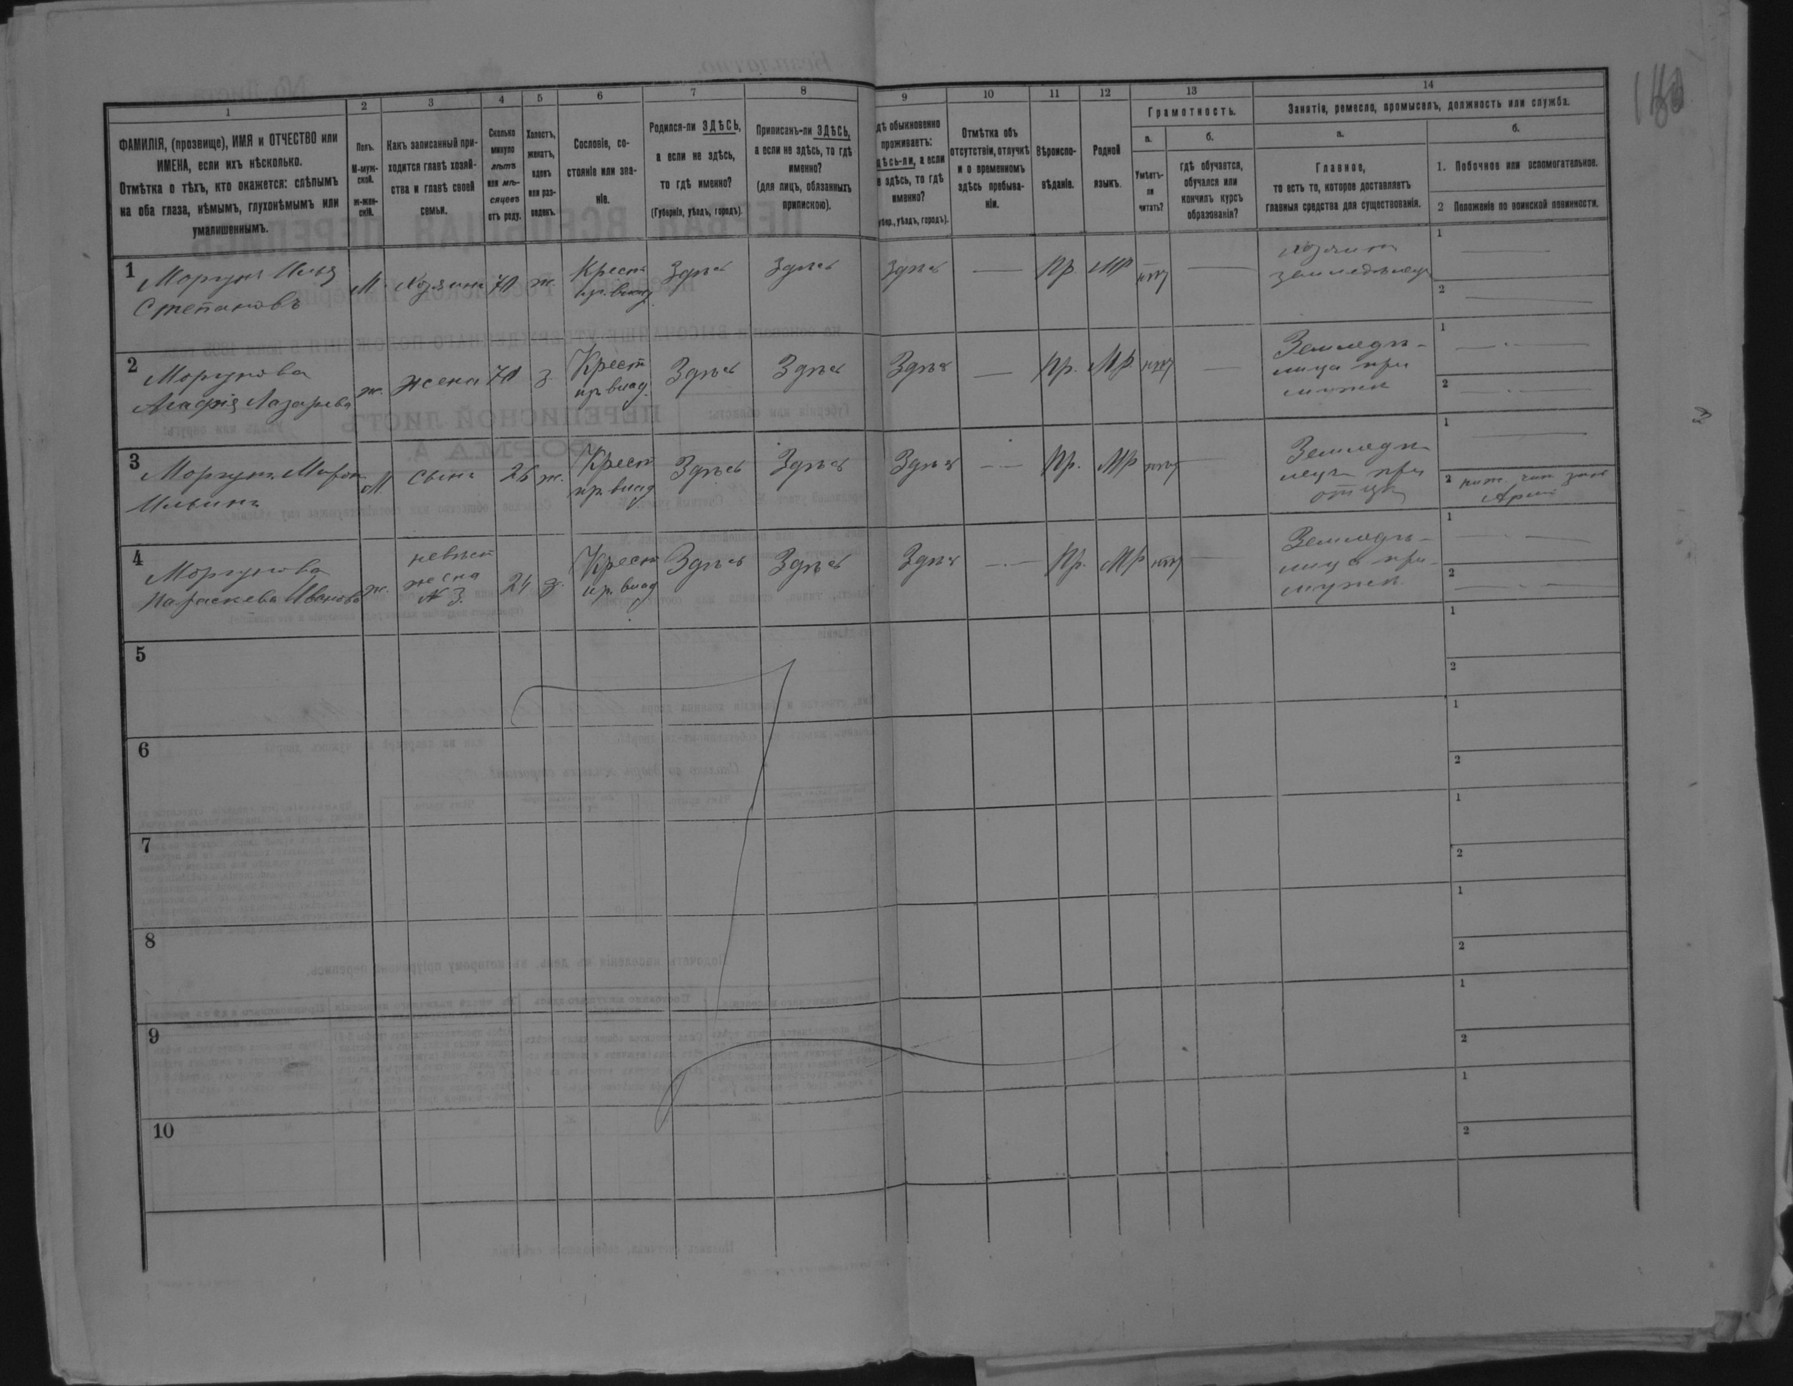 1 2 3 4 5 6 7 8 9 10 11 12 13 14
ФАМИЛІЯ, (прозвище), ИМЯ и ОТЧЕСТВО или
ИМЕНА, если ихъ нѣсколько.
Отмѣтка о тѣхъ, кто окажется: слѣпымъ
на оба глаза, нѣмымъ, глухонѣмымъ или
умалишеннымъ.
Полъ.
М-муж-
ской.
ж-жен-
скій.
Какъ записанный при-
ходится главѣ хозяй-
ства и главѣ своей
семьи.
Сколько
минуло
лѣтъ
или мѣ-
сяцевъ
отъ роду.
Холостъ,
женатъ,
вдовъ
или раз-
веденъ.
Сословіе, со-
стояніе или зва-
ніе.
Родился-ли ЗДѢСЬ,
а если не здѣсь,
то гдѣ именно?
(Губернія, уѣздъ, городъ).
Приписанъ-ли ЗДѢСЬ,
а если не здѣсь, то гдѣ
именно?
(для лицъ, обязанныхъ
припискою).
дѣ обыкновенно
проживаетъ:
дѣсь-ли, а если
е здѣсь, то гдѣ
именно?
убер., уѣздъ, городъ).
Отмѣтка объ
отсутствіи, отлучкѣ
и о временномъ
здѣсь пребыва-
ніи.
Вѣроиспо-
вѣданіе.
Родной
языкъ.
Грамотность.
а.
Умѣетъ-
ли
читать?
б.
гдѣ обучается,
обучался или
кончилъ курсъ
образованія?
Занятіе, ремесло, промыселъ, должность или служба.
а.
Главное,
то есть то, которое доставляетъ
главныя средства для существованія.
б.
1. Побочное или вспомогательное.
2 Положеніе по воинской повинности.
1 Моргунъ Илья
Степановъ
М. Хозяинъ 70 ж. Крест
из. влад Здѣсь Здѣсь Здѣсь — Пр. МР нѣтъ —
хозяинъ
земледѣлецъ
1 —
2 —
2 Моргунова
Агафія Лазарева
ж. жена 70 з Крест
из влад. Здѣсь Здѣсь Здѣсь — Пр. МР нѣтъ —
Земледѣ-
лица при
мужѣ
1 —
2 —
3 Моргунъ Мирон
Ильинъ
М сынъ 26 ж. Крест
из. влад Здѣсь Здѣсь Здѣсь — Пр. МР нѣтъ —
Земледѣ-
лецъ при
отцѣ
1 —
2 ниж. чин зап
Арміи
4 Моргунова
Параскева Иванова
ж. невѣст
жена
№ 3. 24 з. Крест
из. влад Здѣсь Здѣсь Здѣсь — Пр. МР нѣтъ —
Земледѣ-
лица при
мужѣ
1 —
2 —
5
1
2
6
1
2
7
1
2
8
1
2
9
1
2
10
1
2